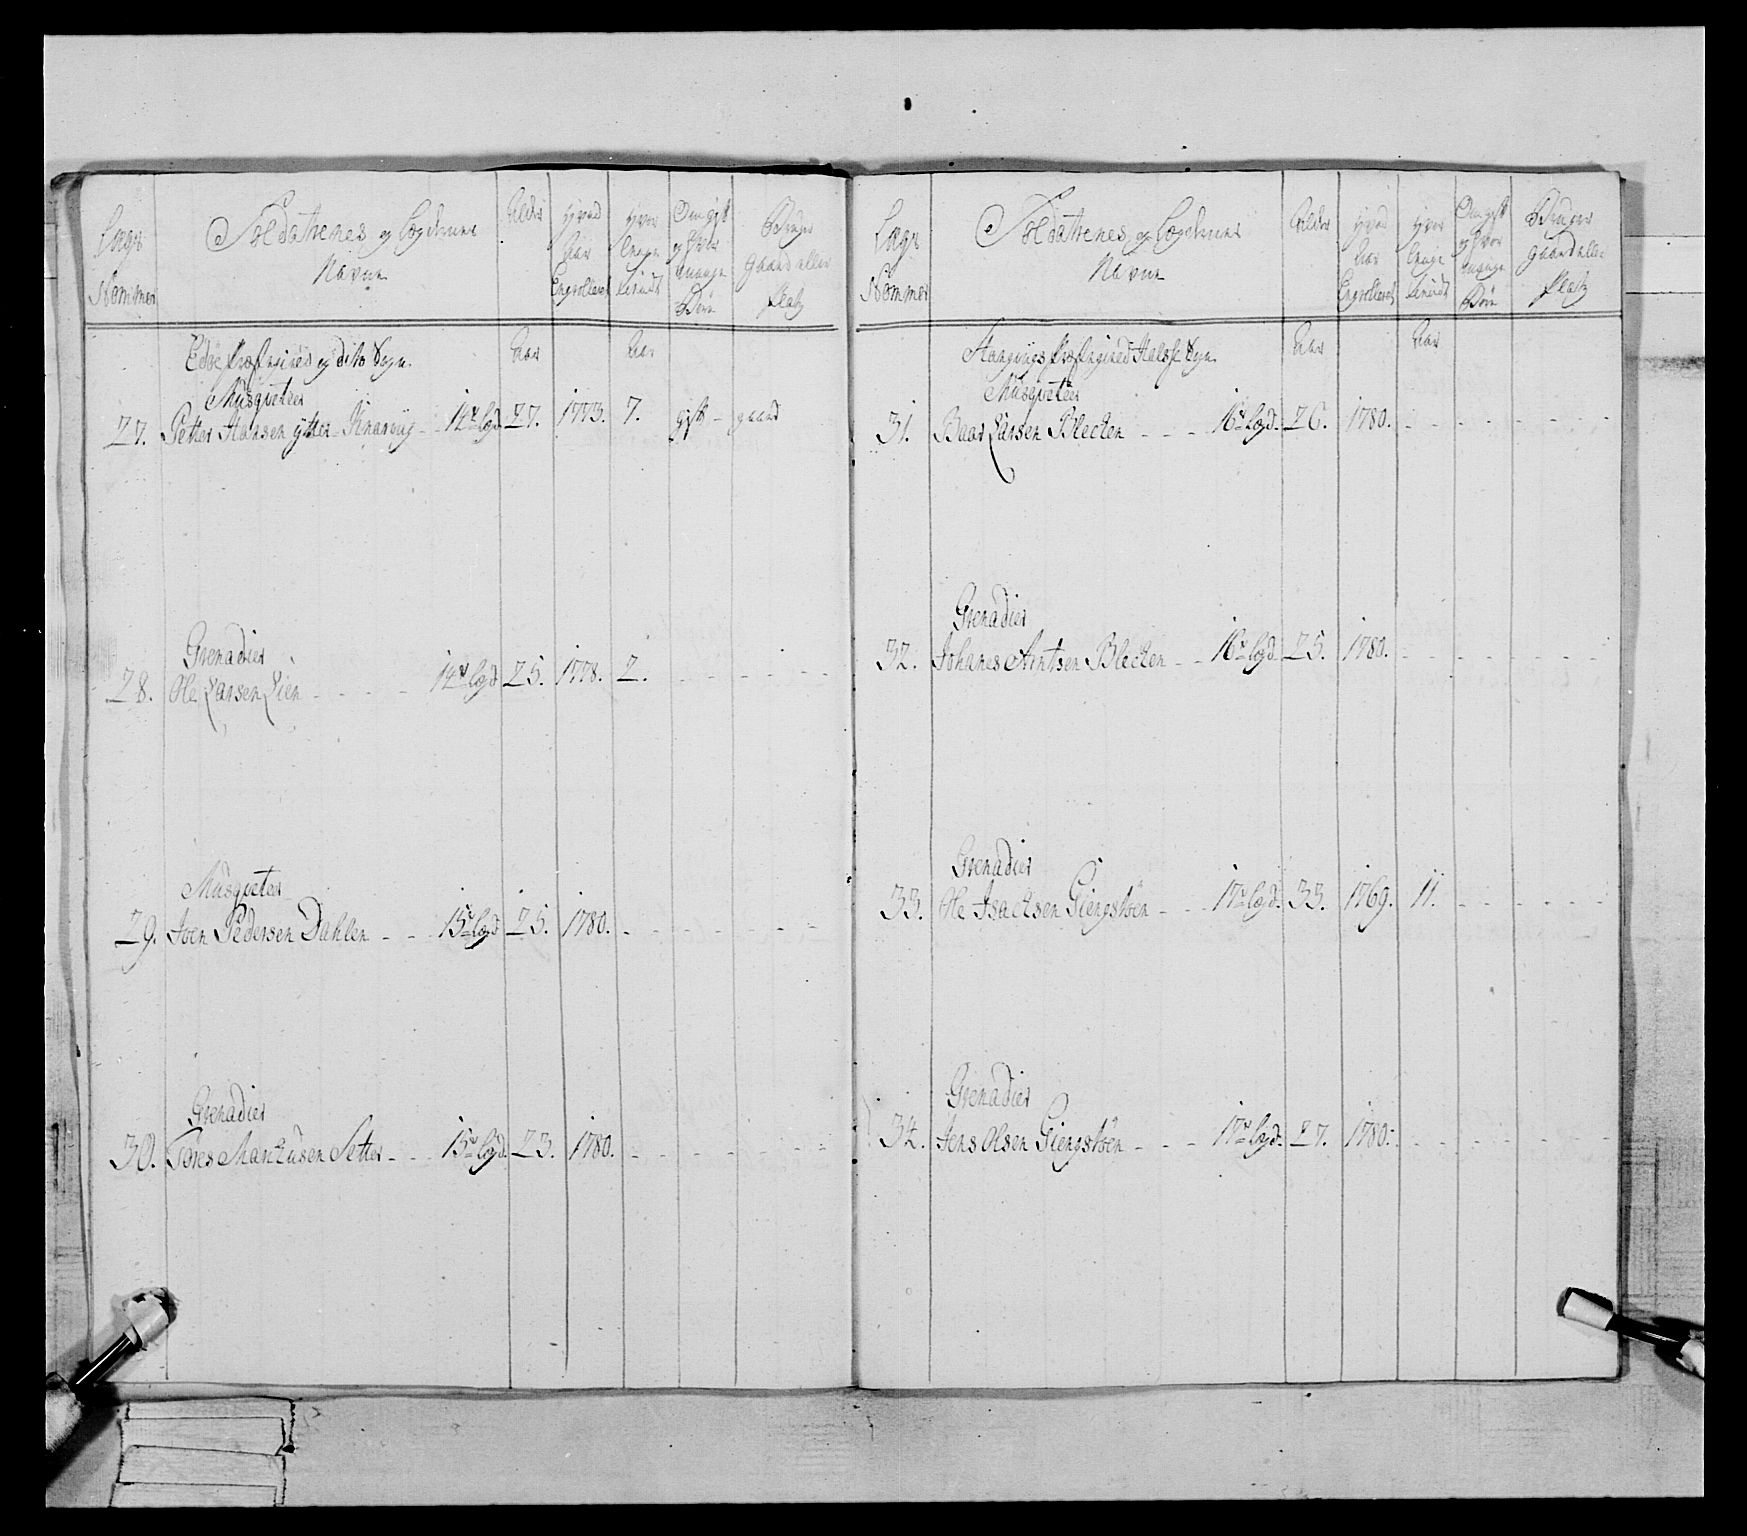 Lægs Nommer
Soldatternes og Lægdernes Navne
Alder
Hvad Aar Enrolleret
Hvor længe tient
Om gift og hvor mange Børn
Bruger Gaard eller Platz
Edøe Præstegield og dito Sogn
Aar
Aar
Musqueteer
27. Petter Hansen ytter Knarvüg - 14de lægd 27. 1773. 7. gift - gaard
Grenadier
28. Ole Larsen Lien - - - - 14de lægd 25. 1778. 2. - - - - -
Musqueter
29. Joen Pedersen Dahlen - - 15de lægd 25. 1780. - - - - - -
Grenadier
30. Tøres Marküsen Setter - - 15de lægd. 23. 1780. - - - - - -
Lægs Nommer
Soldatternes og Lægdernes Navne
Alder
Hvad Aar Enrolleret
Hvor længe tient
Om gift og hvor mange Børn
Bruger Gaard eller Platz
Stangvügs Præstegield Halsse Sogn
Aar
Aar
Musqueteer
31. Baar Larsen Blecken - - - 16de lægd. 26. 1780. - - - - - -
Grenadier
32. Johanes Arntsen Blecken - - 16de lægd. 25. 1780. - - - - - -
Grenadier
33. Ole Isacksen Giengstøen - - 17de lægd. 33. 1769. 11. - - - - -
Grenadier
34. Jens Olsen Giengstøen - - - 17de lægd. 27. 1780. - - - - - -